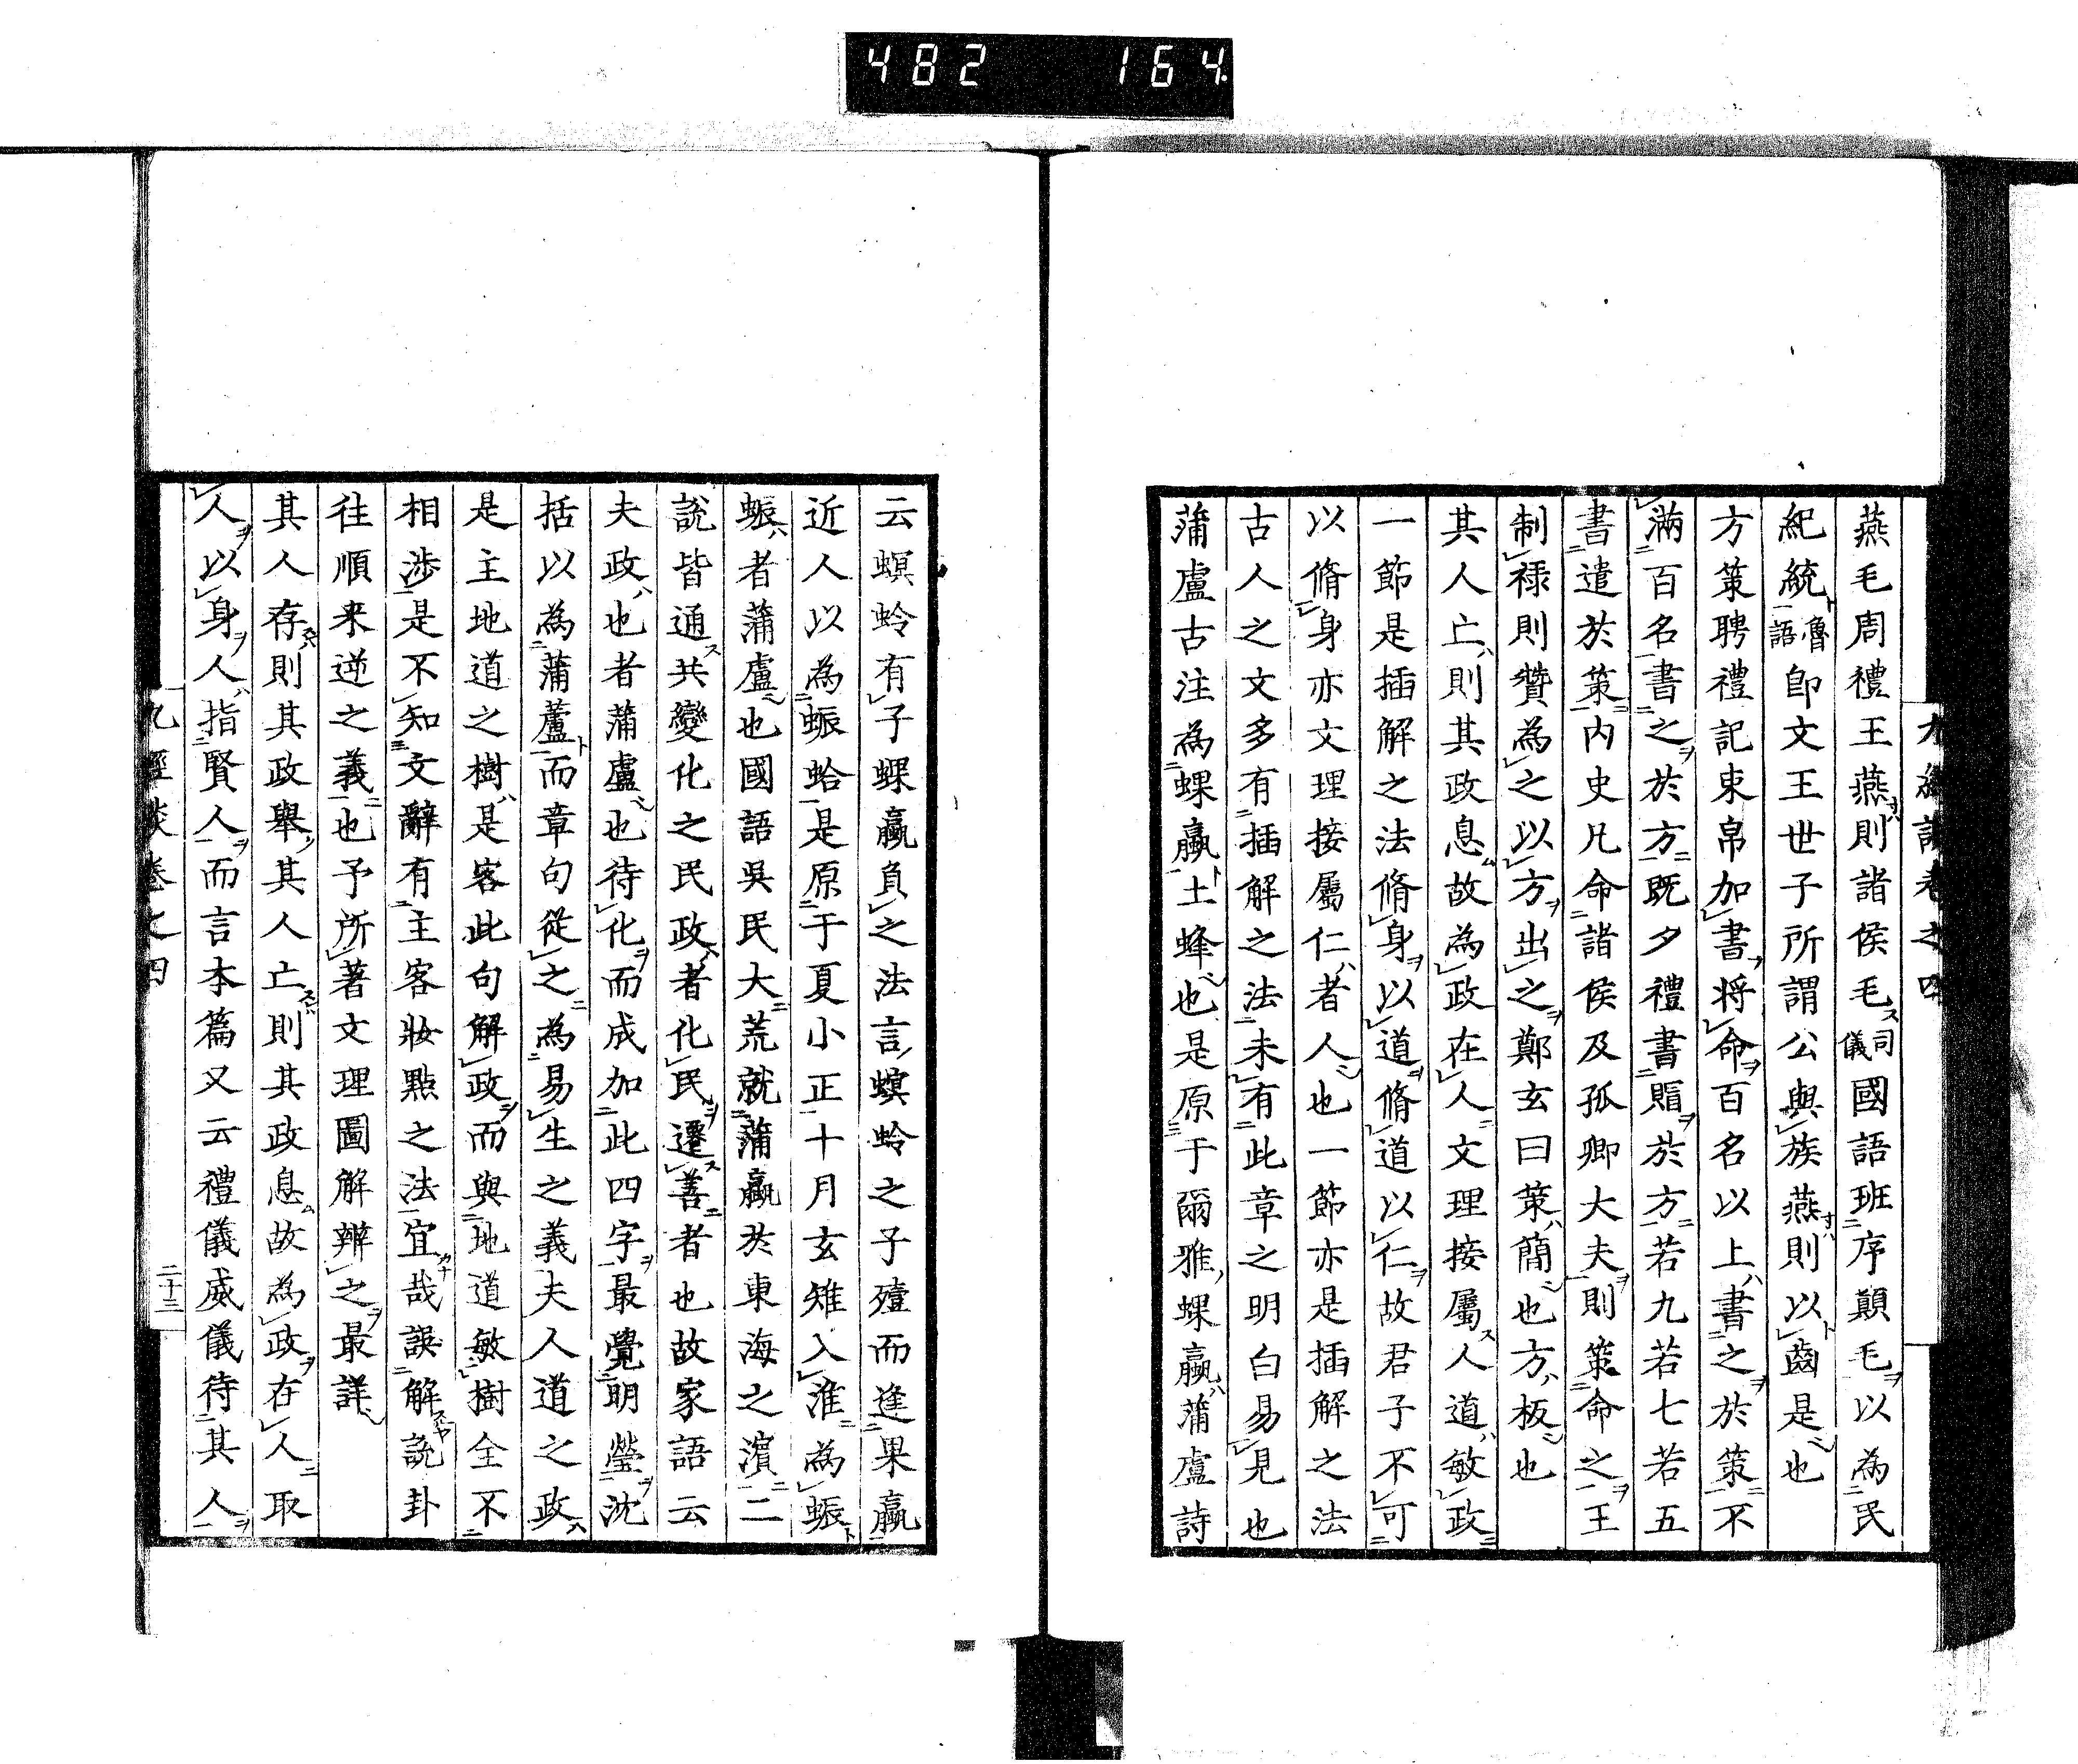 482 164
九經談卷之四
燕毛周禮王燕則諸侯毛司儀國語班序顛毛以為民
紀統魯語即文王世子所謂公與族燕則以齒是也
方策聘禮記束帛加書將命百名以上書之於策不
滿百名書之於方既夕禮書賵於方若九若七若五
書遣於策内史凡命諸侯及孤卿大夫則策命之王
制祿則贊為之以方出之鄭玄曰策簡也方板也
其人亡則其政息故為政在人文理接屬人道敏政
一節是插解之法脩身以道脩道以仁故君子不可
以脩身亦文理接屬仁者人也一節亦是插解之法
古人之文多有插解之法未有此章之明白易見也
蒲盧古注為蜾蠃土蜂也是原于爾雅蜾蠃蒲盧詩
云螟蛉有子蜾蠃負之法言螟蛉之子殪而逢果蠃
近人以為蜄蛤是原于夏小正十月玄雉入淮為蜄
蜄者蒲盧也國語吳民大荒就蒲蠃於東海之濵二
說皆通共變化之民政者化民遷善者也故家語云
夫政也者蒲盧也待化而成加此四字最覺明瑩沈
括以為蒲蘆而章句從之為易生之義夫人道之政
是主地道之樹是客此句解政而與地道敏樹全不
相涉是不知文辭有主客妝點之法宜哉誤解說卦
往順来逆之義也予所著文理圖解辨之最詳
其人存則其政舉其人亡則其政息故為政在人取
人以身人指賢人而言本篇又云禮儀威儀待其人
九經談卷之四
二十三